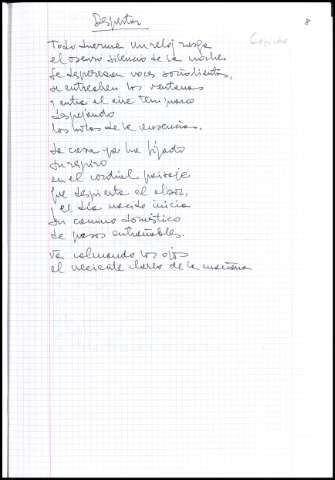 Despertar
8
Copiado
Todo duerme. Un reloj rasga
el oscuro silencio de la noche.
Se desperezan voces soñolientas,
se entreabren las ventanas
y entra el aire temprano
despejando
los hilos de la ausencia.
La casa ya ha fijado
su respiro
en el cordial paisaje
que despierta al albor,
y el día nacido inicia
su camino doméstico
de pasos entrañables.
Va calmando los ojos
el reciente clareo de la mañana